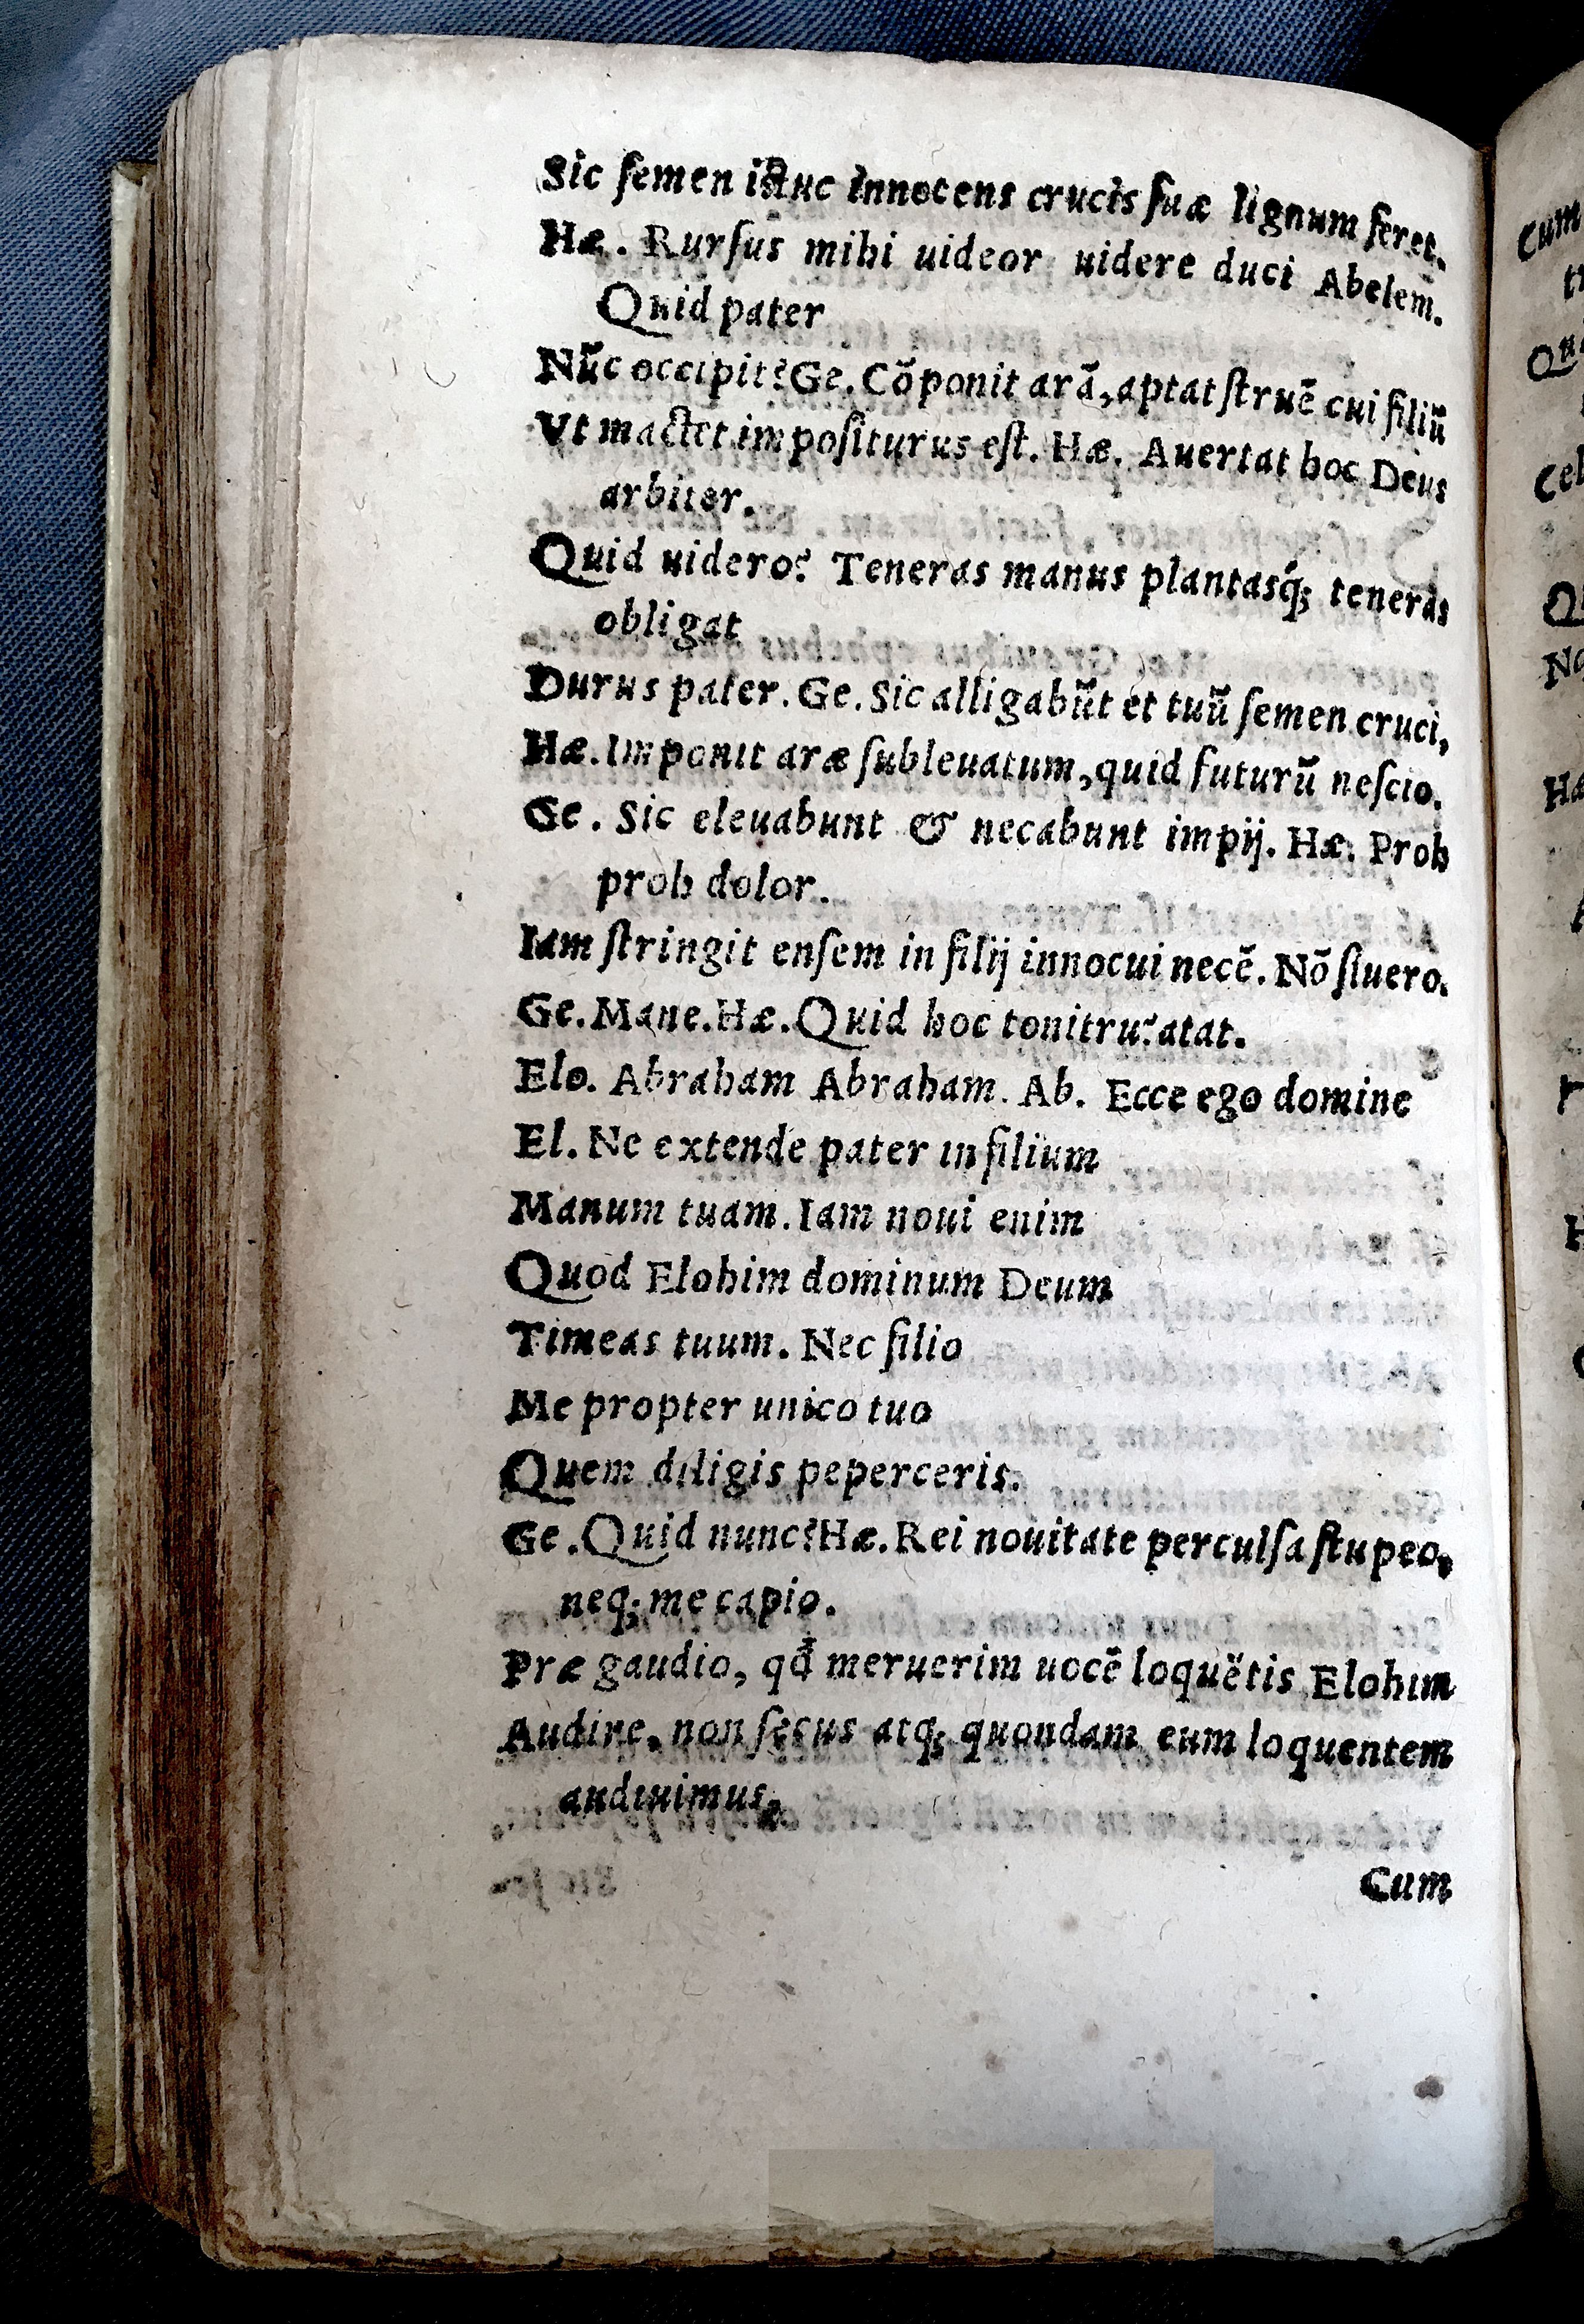 Sic ſemen iſtuc innocens crucis ſuæ lignum feret.
Hæ. Rurſus mihi uideor uidere duci Abelem.
Quid pater
Nūc occipit? Ge. Cōponit arā, aptat ſtruē cui filiū
Vt mactet impoſiturus eſt. Hæ. Auertat hoc Deus
arbiter.
Quid uidero? Teneras manus plantasq́; teneras
obligat
Durus pater. Ge. Sic alligabūt et tuū ſemen cruci,
Hæ. Imponit aræ ſubleuatum, quid futurū neſcio.
Ge. Sic eleuabunt & necabunt impij. Hæ. Proh
proh dolor.
Iam ſtringit enſem in filij innocui necē. Nō ſiuero.
Ge. Mane. Hæ. Quid hoc tonitru? atat.
Elo. Abraham Abraham. Ab. Ecce ego domine
El. Ne extende pater in filium
Manum tuam. Iam noui enim
Quod Elohim dominum Deum
Timeas tuum. Nec filio
Me propter unico tuo
Quem diligis peperceris.
Ge. Quid nunc? Hæ. Rei nouitate perculſa ſtupeo,
neq; me capio.
Præ gaudio, qd̄ meruerim uocē loquētis Elohim
Audire, non ſecus atq; quondam eum loquentem
audiuimus,
Cum